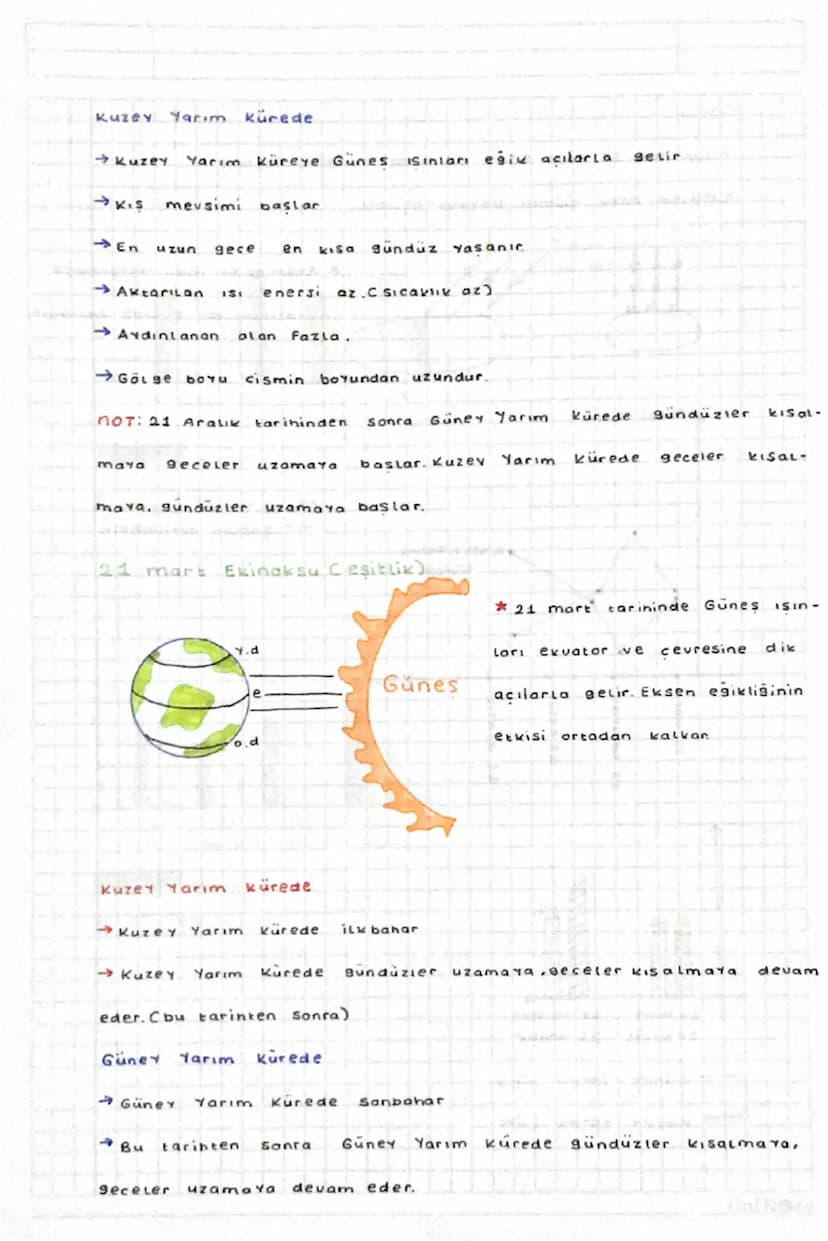 Kuzey Yarım Kürede
→ Kuzey Yarım Küreye Güneş ışınları eğik açılarla gelir
→ Kış mevsimi başlar
→ En uzun gece en kısa gündüz yaşanır
→ Aktarılan ısı enersi az. (sıcaklık az)
→ Aydınlanan alan fazla.
→ Gölge boyu cismin boyundan uzundur.
NOT: 21 Aralık tarihinden sonra Güney Yarım Kürede gündüzler kısal-
maya geceler uzamaya başlar. Kuzey Yarım Kürede geceler kısal-
maya, gündüzler uzamaya başlar.
21 mart Ekinoksu (eşitlik)
* 21 mart tarihinde Güneş ışın-
ları ekvator ve çevresine dik
açılarla gelir. Eksen eğikliğinin
etkisi ortadan kalkar
y.d
e
o.d
Güneş
Kuzey Yarım Kürede
→ Kuzey Yarım Kürede ilkbahar
→ Kuzey Yarım Kürede gündüzler uzamaya, geceler kısalmaya devam
eder. (bu tarihten sonra)
Güney Yarım Kürede
→ Güney Yarım Kürede Sonbahar
→ Bu tarihten sonra Güney Yarım Kürede gündüzler kısalmaya,
geceler uzamaya devam eder.